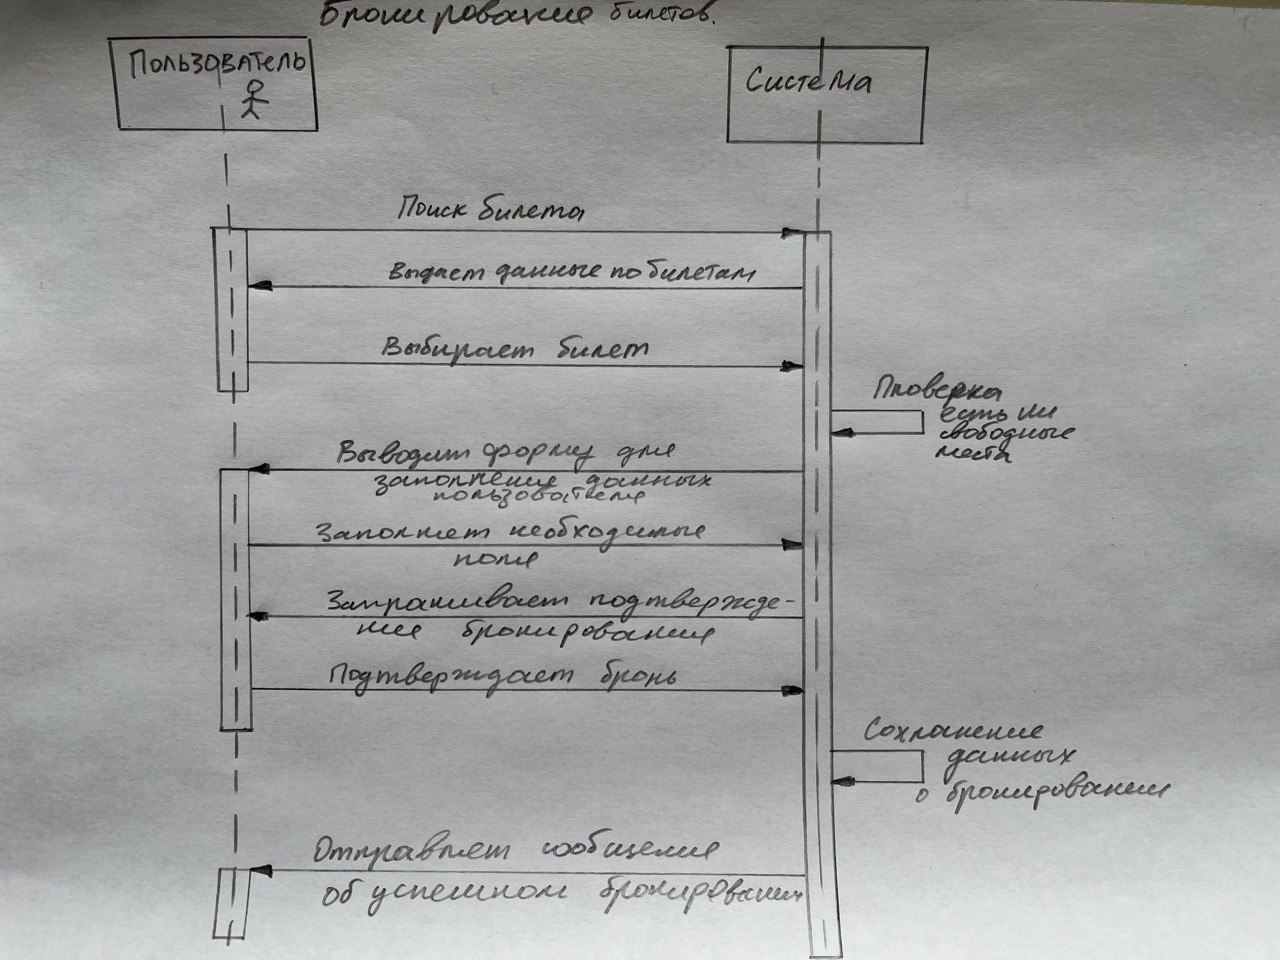 Бронирование билетов.
Пользователь
Система
Поиск билета
Выдает данные по билетам
Выбирает билет
Проверка
есть ли
свободные
места
Выводит форму для
заполнения данных
пользователя
Заполняет необходимые
поля
Запрашивает подтвержде-
ние бронирования
Подтверждает бронь
Сохранение
данных
о бронировании
Отправляет сообщение
об успешном бронировании